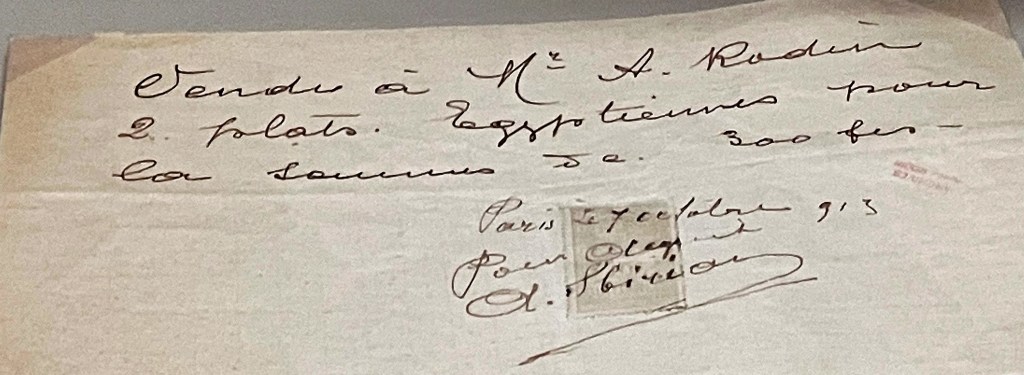 Vendu à Mr A. Rodin
2. plats. Egyptiennes pour
la somme de. 300 frs-
Paris le 7 octobre 913
Pour acquit